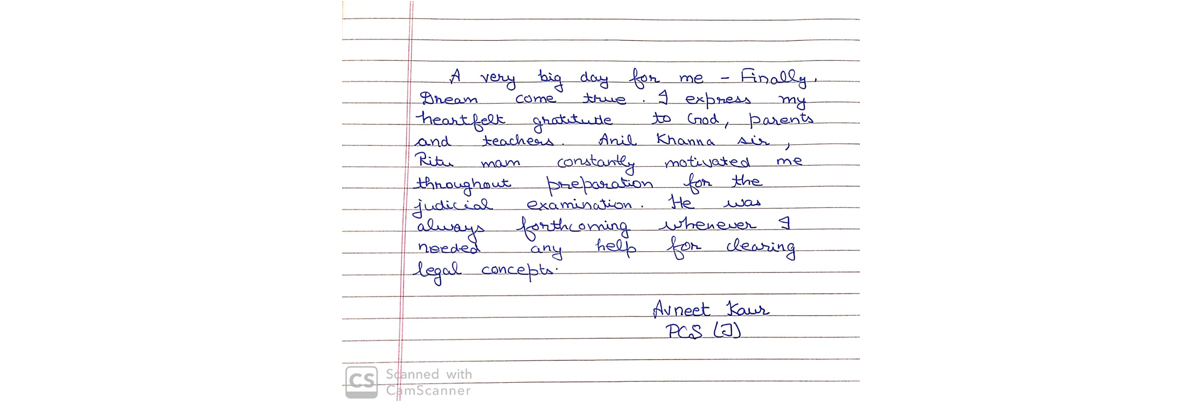 A very big day for me - Finally.
Dream come true. I express my
heartfelt gratitude to God, parents
and teachers. Anil Khanna sir,
Ritu mam constantly motivated me
throughout preparation for the
judicial examination. He was
always forthcoming whenever I
needed any help for clearing
legal concepts.
Avneet Kaur
PCS (J)
CS Scanned with
CamScanner